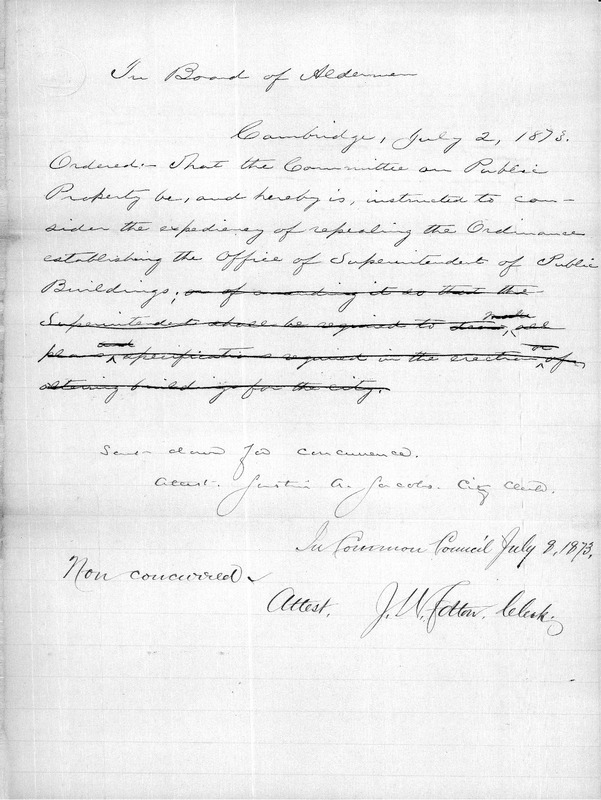 In Board of Aldermen
Cambridge, July 2, 1873.
Ordered:- That the Committee on Public
Property be, and hereby is, instructed to con-
sider the expediency of repealing the Ordinance
establishing the Office of Superintendent of Public
Buildings; or of amending it so that the
Superintendent shall be required to make, all
plans and specifications required in the erection or of
altering buildings for the city.
Sent down for concurrence.
Attest. Justin A. Jacobs. City Clerk.
In Common Council July 8, 1873.
Non concurred
Attest. J. W. Cotton. Clerk.